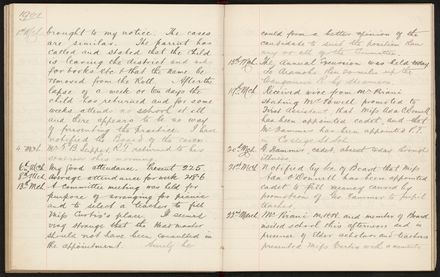 1901
1st Mch brought to my notice. The cases
are similar. The parent has
called and stated that the child
is leaving the district and asked
for books etc & that the name be
removed from the Roll. After the
lapse of a week or ten days the
child has returned and for some
weeks attends no school at all
and there appears to be no way
of preventing the practice. I have
notified the Board of the cases.
4 Mch
this morning.
6th Mch Very good attendance. Present 225
8th Mch Average attendance for week
13th Mch A Committee meeting was held for
purpose of arranging for picnic
and to select a teacher to fill
Miss Curtis's place. It seemed
very strange that the Head master
should not have been consulted in
the appointment. Surely he
could form a better opinion of the
candidate to suit the position than
any or all of the Committee.
15th Mch The Annual Excursion was held today
to
19th Mch Received wire from Mr Pirani
stating Mr Powell promoted to
First Assistant that Miss Ida O'Donnell
has been appointed cadet and that
Mr Gammer has been appointed P.T.
College St Sch.
20th Mch G Gammer cadet absent today through
illness.
21st Mch Notified by Sec of Board that Miss
Ida O'Donnell has been appointed
cadet to fill vacancy caused by
promotion of Geo Gammer to pupil
teacher.
22nd March Mr Pirani M.H.R. and member of Board
visited school this afternoon and in
presence of the scholars and teachers
presented Miss Curtis with a